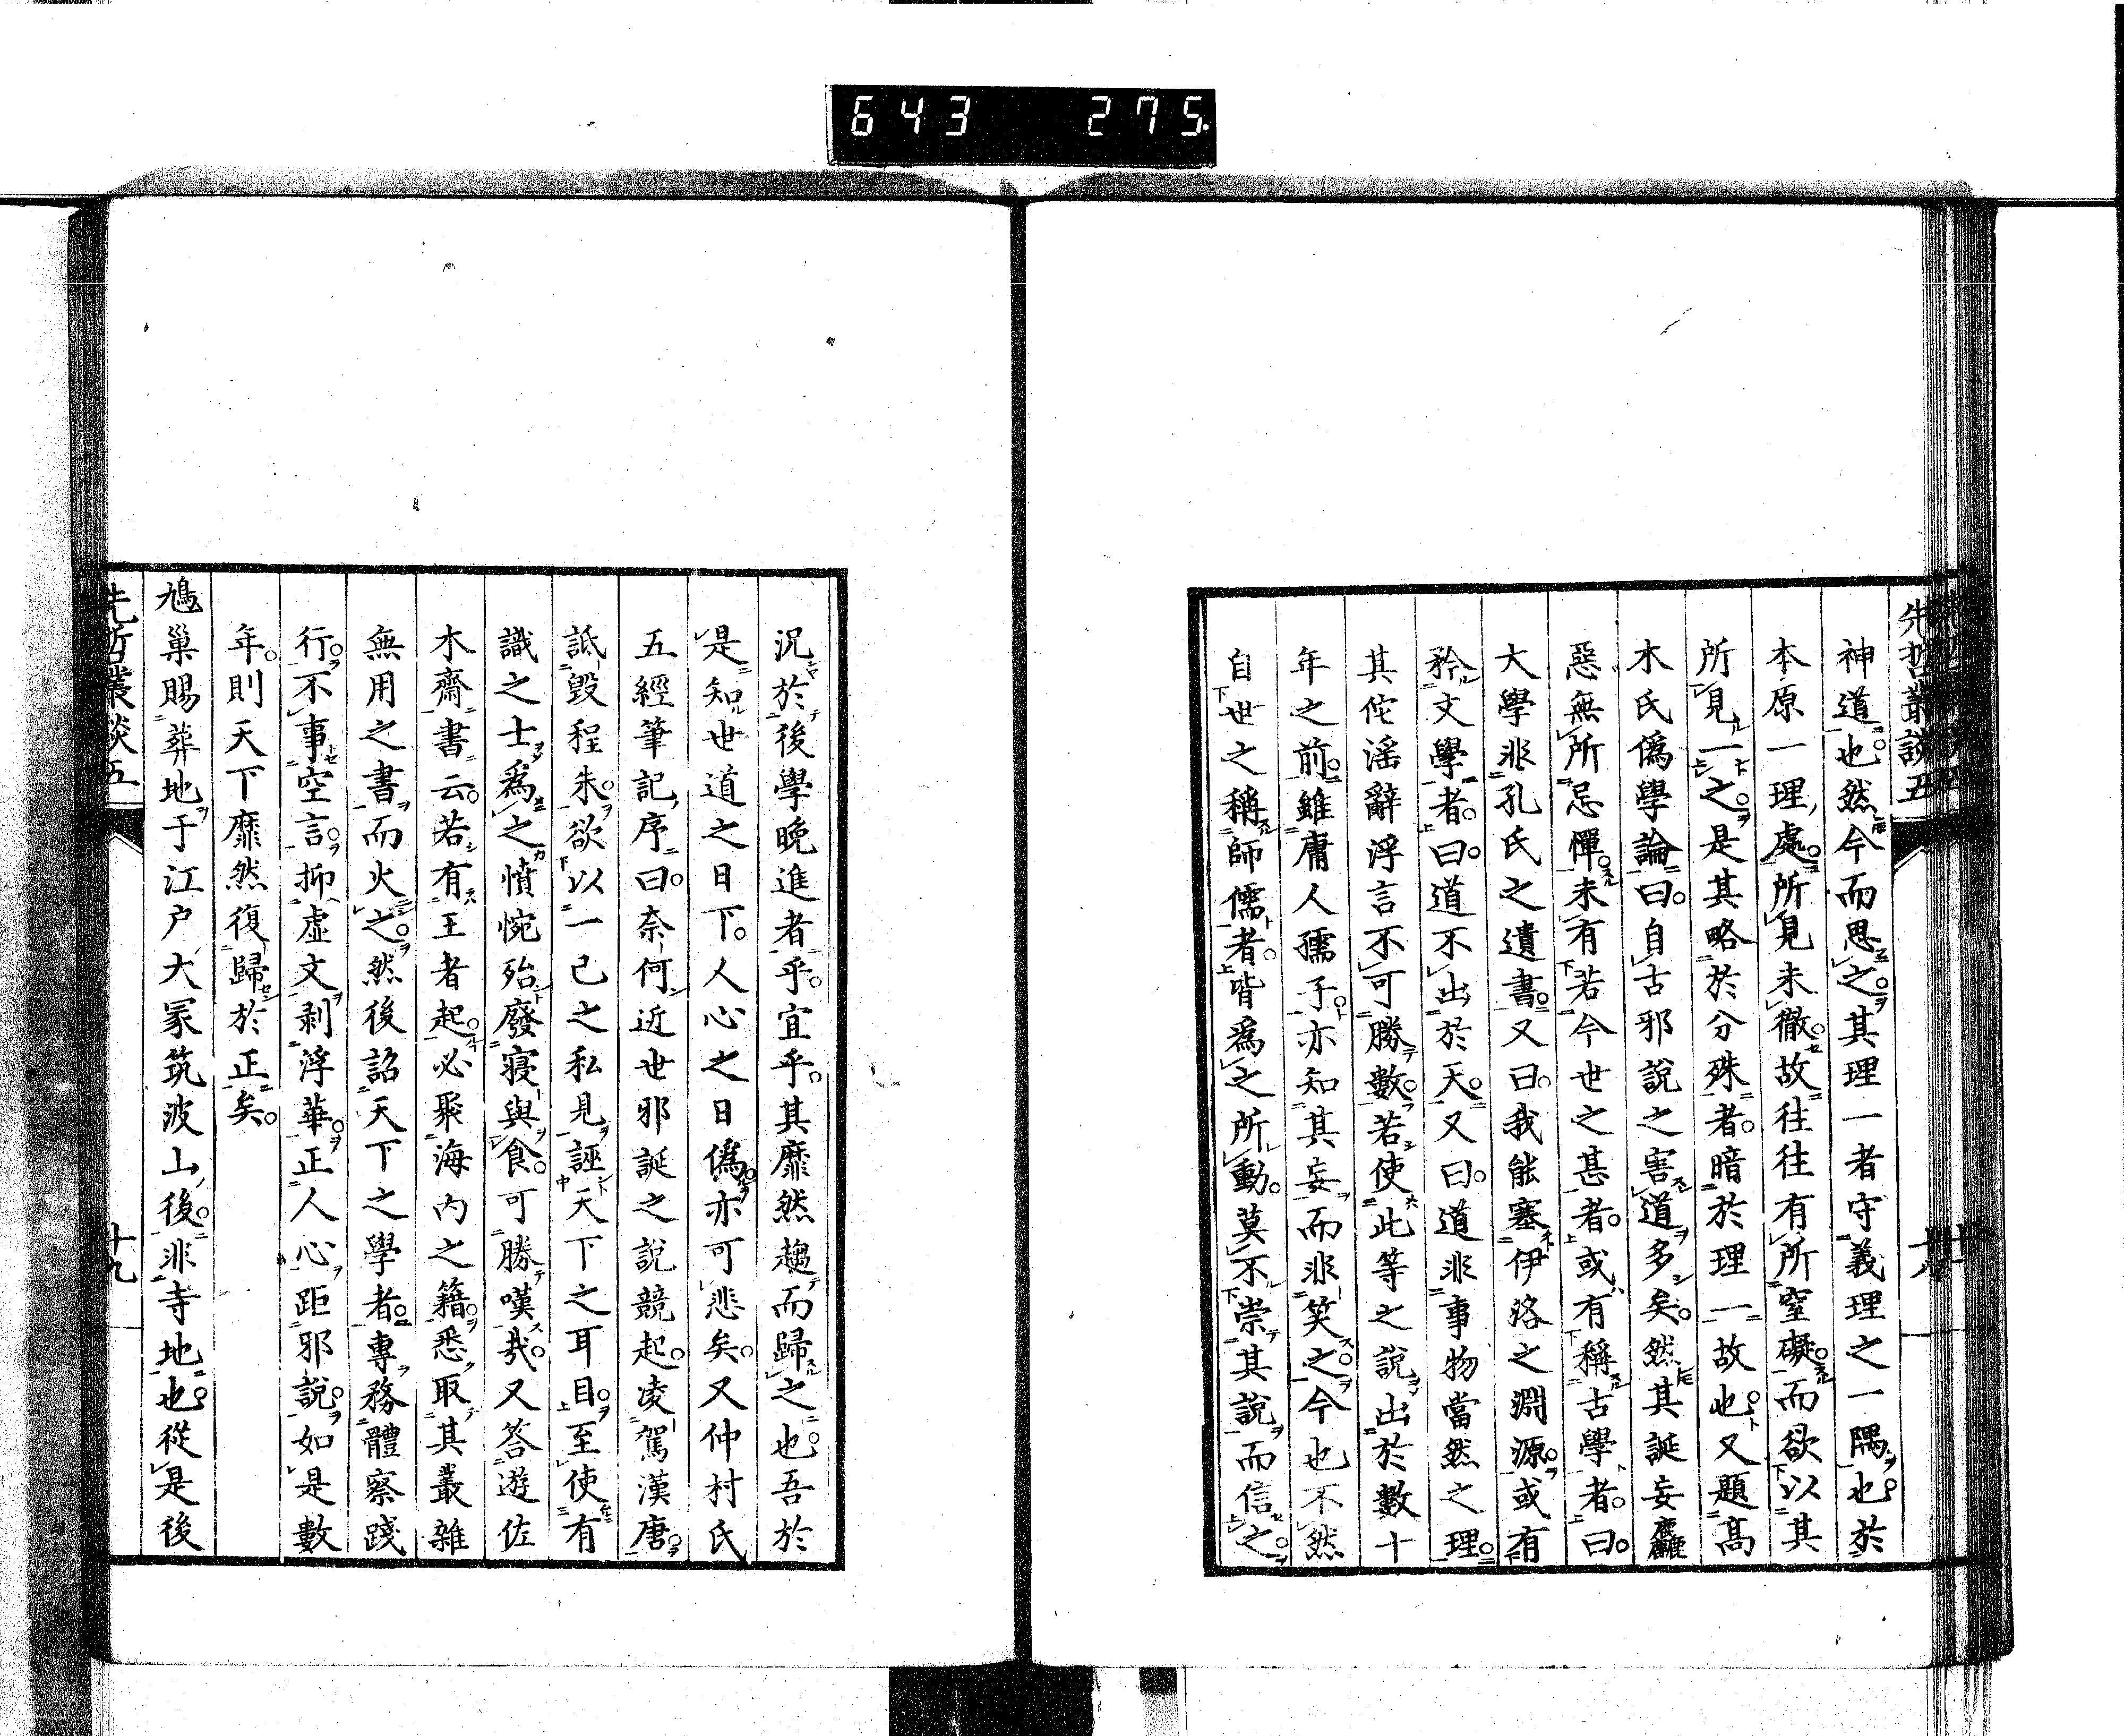 643 275
先哲叢談五
神道也。然今而思之。其理一者守義理之一隅也。於
本原一理處。所見未徹。故往往有所窒礙。而欲以其
所見一之。是其略於分殊者。暗於理一故也。又題高
木氏偽學論曰。自古邪說之害道多矣。然其誕妄麤
惡無所忌憚。未有若今世之甚者。或有稱古學者。曰。
大學非孔氏之遺書。又曰。我能塞伊洛之淵源。或有
矜文學者。曰。道不出於天。又曰。道非事物當然之理。
其佗淫辭浮言不可勝數。若使此等之說出於數十
年之前。雖庸人孺子。亦知其妄而非笑之。今也不然
自世之稱師儒者。皆為之所動。莫不崇其說而信之。
況於後學晚進者乎。宜乎。其靡然趨而歸之也。吾於
是知世道之日下。人心之日偽。亦可悲矣。又仲村氏
五經筆記序曰。奈何近世邪誕之說競起。凌駕漢唐。
詆毀程朱。欲以一己之私見誣天下之耳目。至使有
識之士為之憤惋殆廢寢與食。可勝嘆哉。又答遊佐
木齋書云。若有王者起。必聚海內之籍。悉取其叢雜
無用之書而火之。然後詔天下之學者。專務體察踐
行。不事空言。抑虛文剥浮華。正人心距邪說。如是數
年。則天下靡然復歸於正矣。
鳩巢賜葬地于江戶大冢筑波山後。非寺地也。從是後
先哲叢談五
十九